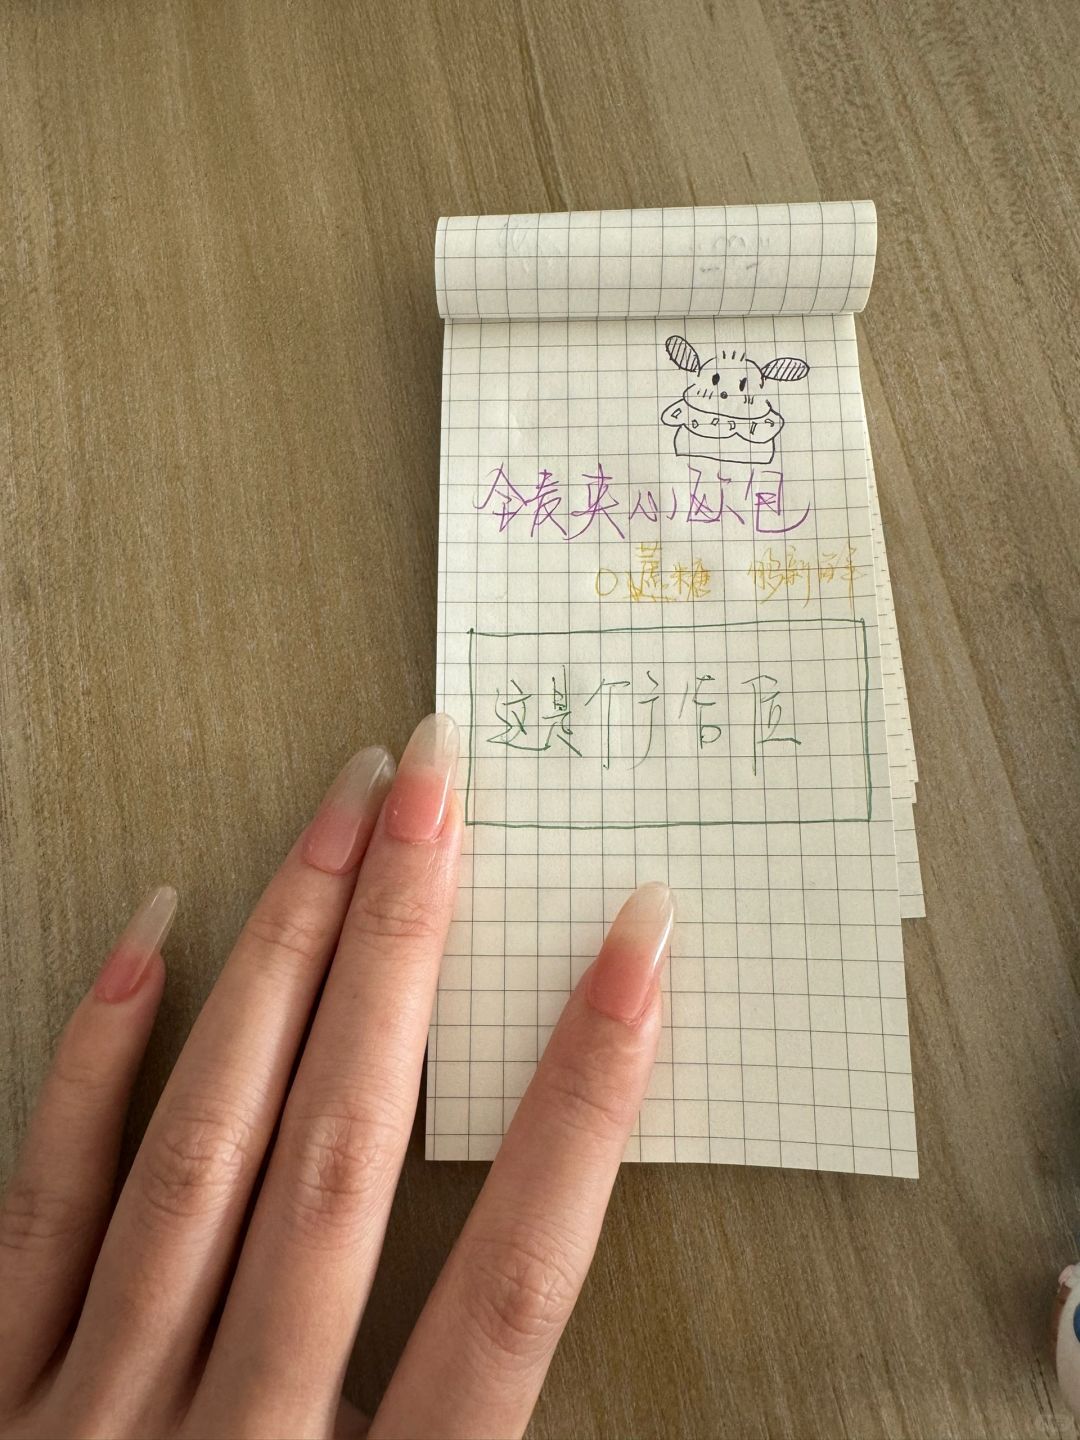 全麦夹心欧包
0蔗糖 够新鲜
这是个广告位